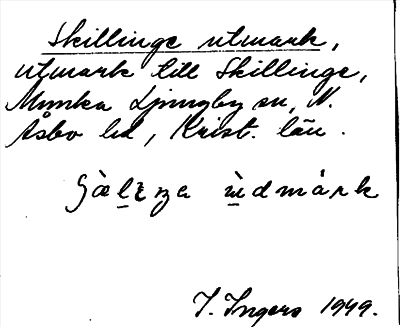 Skillinge utmark,
utmark till Skillinge,
Munka Ljungby sn, N.
Åsbo hd, Krist. län.
ùdmárk
I. Ingers 1949.